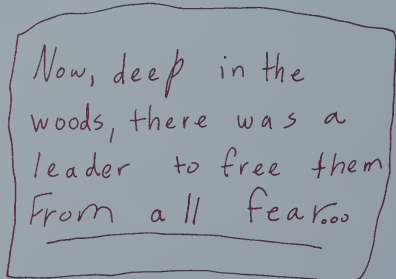 Now, deep in the
woods, there was a
leader to free them
From all fear...